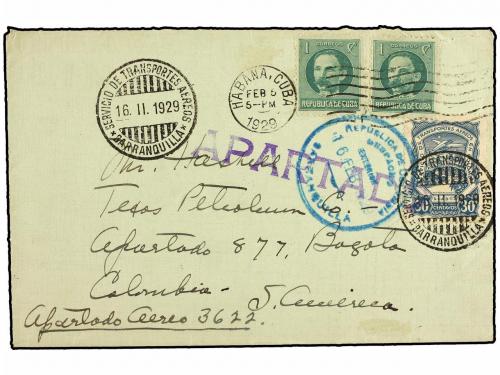 1 CORREOS ¢
REPUBLICA DE CUBA
1 CORREOS ¢
REPUBLICA DE CUBA
HABANA, CUBA
FEB 5
5-PM
1929
SERVICIO DE TRANSPORTES AEREOS
16. II. 1929
BARRANQUILLA
APARTADO
REPUBLICA DE
TRANSPORTES AEREOS
30 CENTAVOS 30
SERVICIO DE TRANSPORTES AEREOS
BARRANQUILLA
Mr.
Texas Petroleum Co.
Apartado 877, Bogota
Colombia - S. America.
Apartado Aereo 3622.